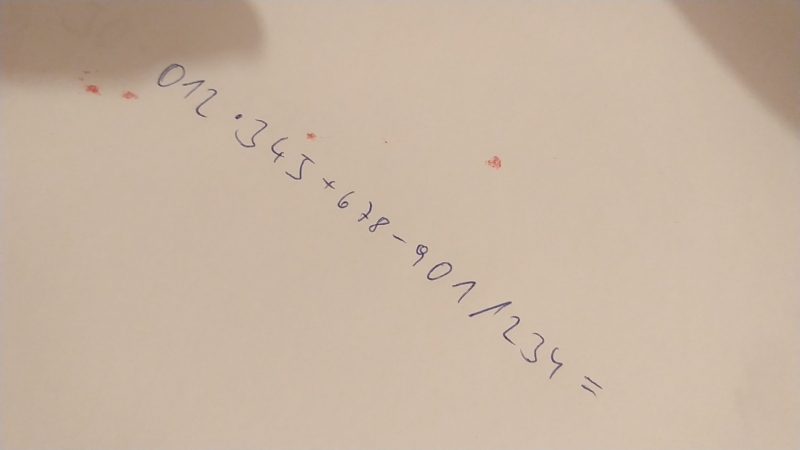 012·345+678-901/234=